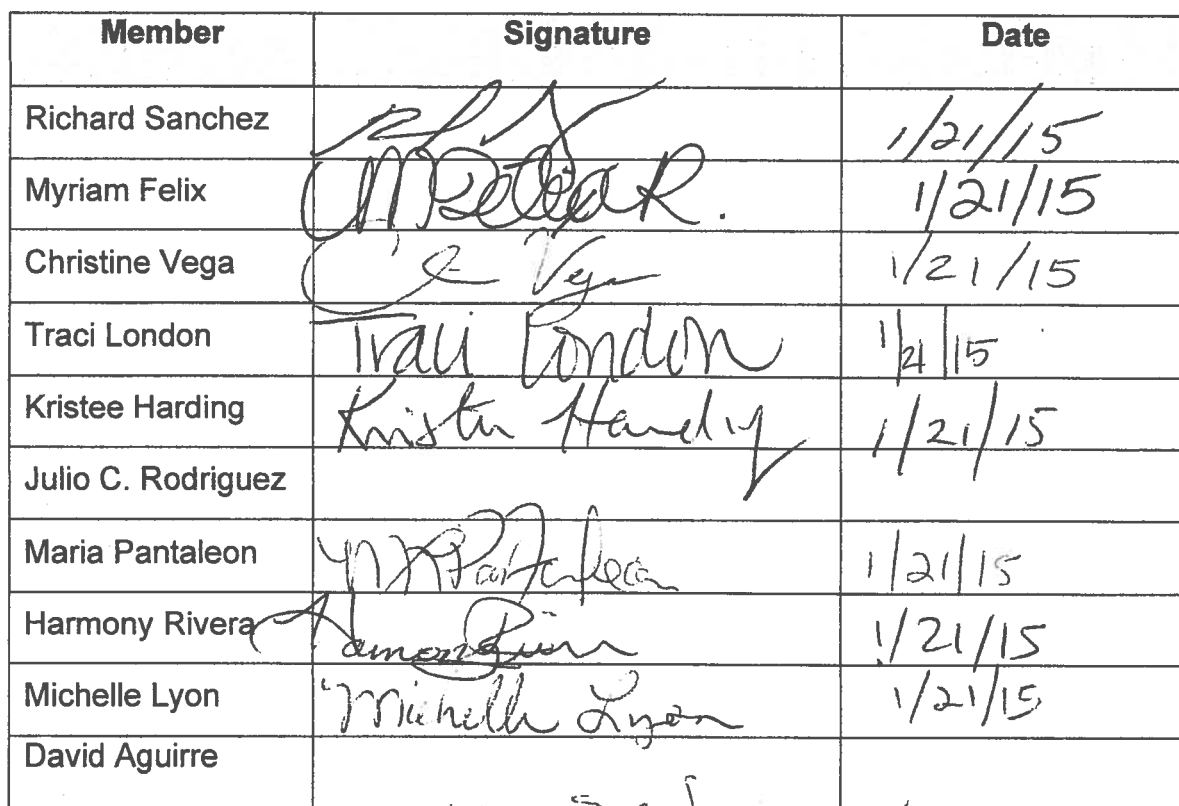 Member Signature Date
Richard Sanchez 1/21/15
Myriam Felix 1/21/15
Christine Vega Vega 1/21/15
Traci London Traci London 1/21/15
Kristee Harding 1/21/15
Julio C. Rodriguez
Maria Pantaleon M Pantaleon 1/21/15
Harmony Rivera 1/21/15
Michelle Lyon Michelle Lyon 1/21/15
David Aguirre